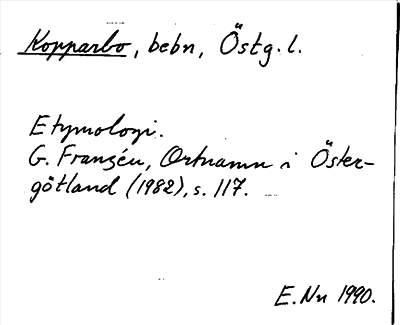 Kopparbo, bebn, Östg. l.
Etymologi.
G. Franzén, Ortnamn i Öster-
götland (1982), s. 117.
E. Nn 1990.